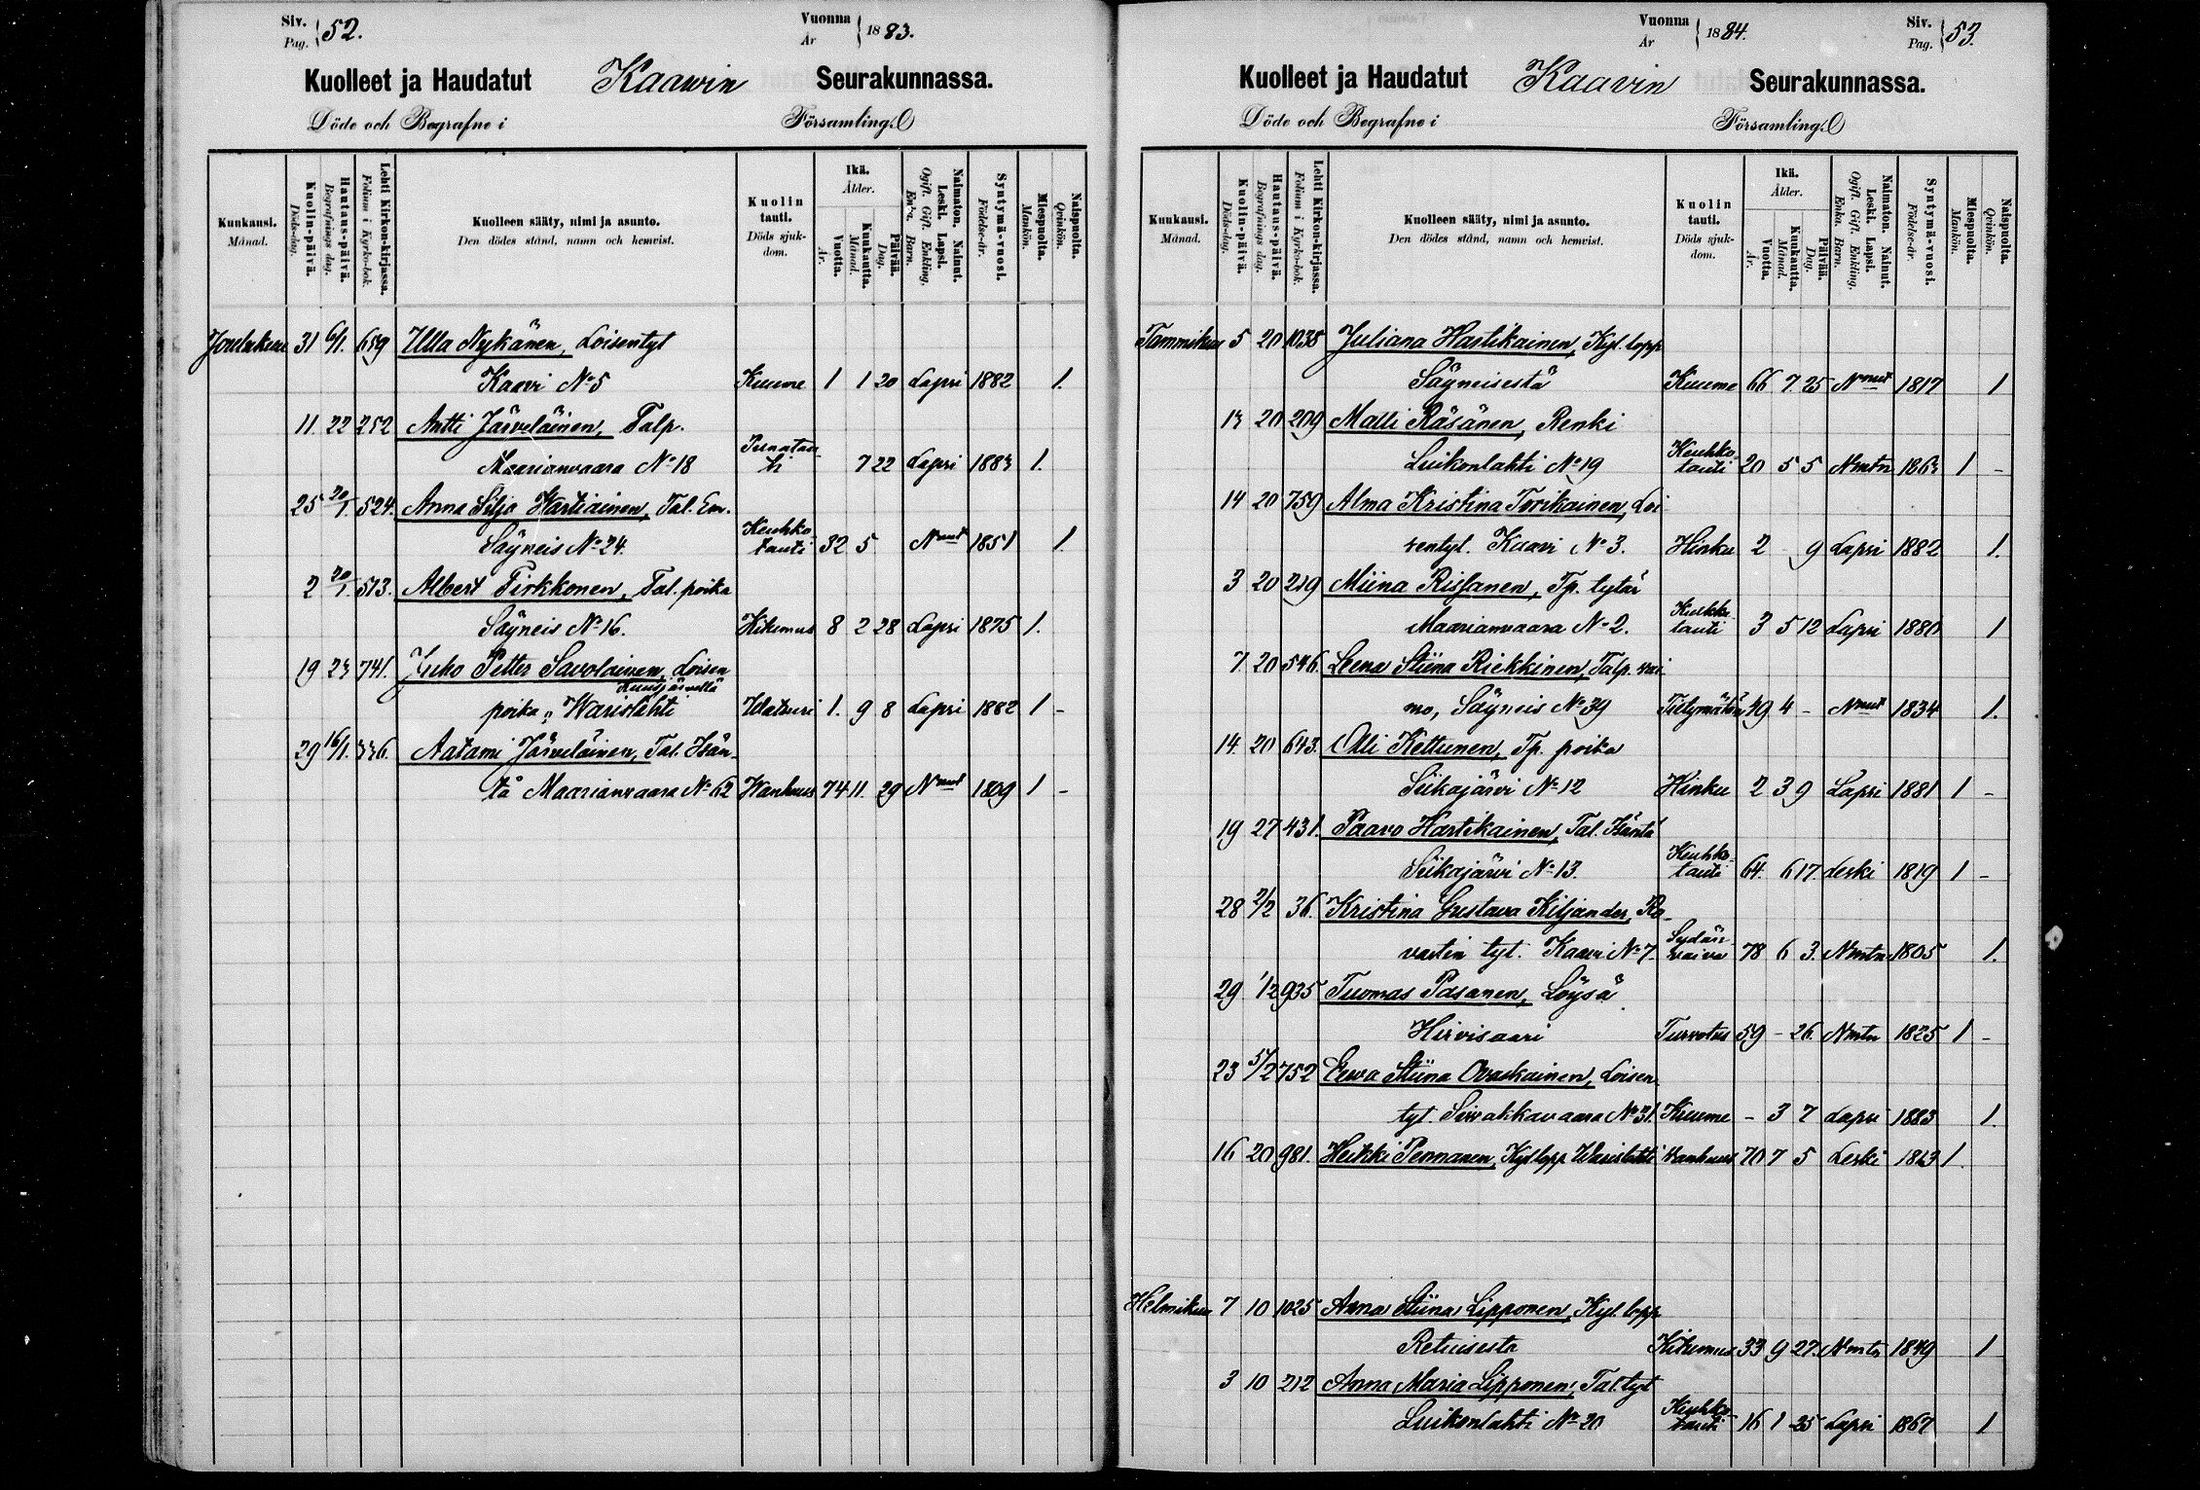 Siv. Pag. 52. Vuonna År 1883.
Kuolleet ja Haudatut Kaawin Seurakunnassa.
Döde och Begrafne i Församling.
Kuukausi. Månad.
Kuolin-päivä. Döds-dag.
Hautaus-päivä. Begrafnings dag.
Lehti Kirkon-kirjassa. Folium i Kyrko-bok.
Kuolleen sääty, nimi ja asunto. Den dödes stånd, namn och hemvist.
Kuolin tauti. Döds sjuk-dom.
Ikä. Ålder.
Vuotta. År.
Kuukautta. Månad.
Päivää. Dag.
Naimaton. Nainut. Leski. Lapsi. Ogift. Gift. Enkling. Enka. Barn.
Syntymä-vuosi. Födelse-år.
Miespuolta. Mankön.
Naispuolta. Qvinkön.
Joulukuu 31 6/1. 659 Ulla Nykänen, Loisentyt
Kaavi No 5 Kuume 1 1 20 Lapsi 1882 1.
11. 22 252 Antti Järveläinen, Talp.
Maarianvaara No 18 7 22 Lapsi 1883 1.
25 20/1. 524. Anna Silja Hartiainen, Tal. Em.
Säyneis No 24. Keuhko-tauti 32 5 Nnut 1851 1.
2 20/1 513. Albert Pirkkonen, Tal. poika
Säyneis No 16. Hikumus 8 2 28 Lapsi 1875 1.
19 23 741. Juho Petter Savolainen, Loisen
Kuusjärvellä
poika, Warislahti 1. 9 8 Lapsi 1882 1 -
29 16/1. 336. Aatami Järveläinen, Tal. Isän-
tä Maarianvaara No 62 Wanhuus 74 11. 29 Nnut 1809 1 -
Siv. Pag. 53. Vuonna År 1884.
Kuolleet ja Haudatut Kaavin Seurakunnassa.
Döde och Begrafne i Församling.
Kuukausi. Månad.
Kuolin-päivä. Döds-dag.
Hautaus-päivä. Begrafnings dag.
Lehti Kirkon-kirjassa. Folium i Kyrko-bok.
Kuolleen sääty, nimi ja asunto. Den dödes stånd, namn och hemvist.
Kuolin tauti. Döds sjuk-dom.
Ikä. Ålder.
Vuotta. År.
Kuukautta. Månad.
Päivää. Dag.
Naimaton. Nainut. Leski. Lapsi. Ogift. Gift. Enkling. Enka. Barn.
Syntymä-vuosi. Födelse-år.
Miespuolta. Mankön.
Naispuolta. Qvinkön.
Tammikuu 5 20 1038 Juliana Hartikainen, Kyl. lopp
Säyneisestä Kuume 66 7 25 Nnut 1817 1
13 20 209 Matti Räsänen, Renki
Luikonlahti No 19 Keuhko-tauti 20 5 5 Nmtn 1863 1 -
14 20 759 Alma Kristina Torikainen, Loi
sentyt. Kaavi No 3. Hinku 2 9 Lapsi 1882 1.
3 20 219 Miina Rissanen, Tp. tytär
Maarianvaara No 2. Keuhko-tauti 3 5 12 Lapsi 1880 1
7. 20 546. Leena Stiina Riekkinen, Talp. vai
mo, Säyneis No 39 49 4 - Nnut 1834 1.
14. 20 643. Olli Kettunen, Tp. poika
Siikajärvi No 12 Hinku 2 3 9 Lapsi 1881 1 -
19 27 431. Paavo Hartikainen, Tal. Isäntä
Siikajärvi No 13. Keuhko-tauti 64. 6 17. Leski 1819 1 -
28 2/2 36. Kristina Gustava Kiljander, Ro-
vastin tyt. Kaavi No 7. Sydän-vaiva 78 6 3. Nmtn 1805 1.
29 1/2 935 Tuomas Pasanen, Löysä
Hirvisaari Turvotus 59 - 26. Nmtn 1825 1 -
23 5/2 752 Eeva Stiina Ovaskainen, Loisen
tyt. Sivakkavaara No 31. Kuume - 3 7 Lapsi 1883 1.
16 20 981. Heikki Pennanen, Kyl lopp Warislahti Wanhuus 70 7 5 Leski 1813 1.
Helmikuu 7 10 1025 Anna Stiina Lipponen, Kyl. lopp
Retuisesta Hikumus 33 9 27. Nmtn 1849 1
3 10 212 Anna Maria Lipponen, Tal. tyt
Luikonlahti No 20 Keuhko-tauti 16 1 25 Lapsi 1867 1